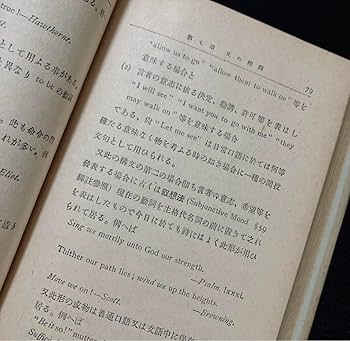 true!—Hawthorne.
として用よる事がある。
異なり to be の動詞
も、此も命令の意
れが多い。例へ
Eliot.
第七章 文の種類
79
“allow us to go” “allow them to walk on” 等を
意味する場合と
(2) 言者の意志に依る決定、勸誘、許可等を表はし
“I will see” “I want you to go with me” “they
may walk on” 等を意味する場合
である。尙 “Let me see” は日常口語に於ては何等
確たる意味なく物を考よる時の如き場合に一種の間投
文句として用ひられる。
又此の構文の第二の場合卽ち言者の意志、希望等を
發表する場合に古くは叙想法 (Subjunctive Mood § 50
脚註參照) 現在の動詞を主格代名詞の前に置きてこれ
を表はしたもので今日に於ても詩にはよく此形が用ひ
られて居る。例へば
Sing we merrily unto God our strength.
—Psalm. lxxxi.
Thither our path lies; wind we up the heights.
—Browning.
Move we on!—Scott.
又此形の或物は普通口語又は文語中に
居る。例へば
“Be it so!” mutter
Suffic